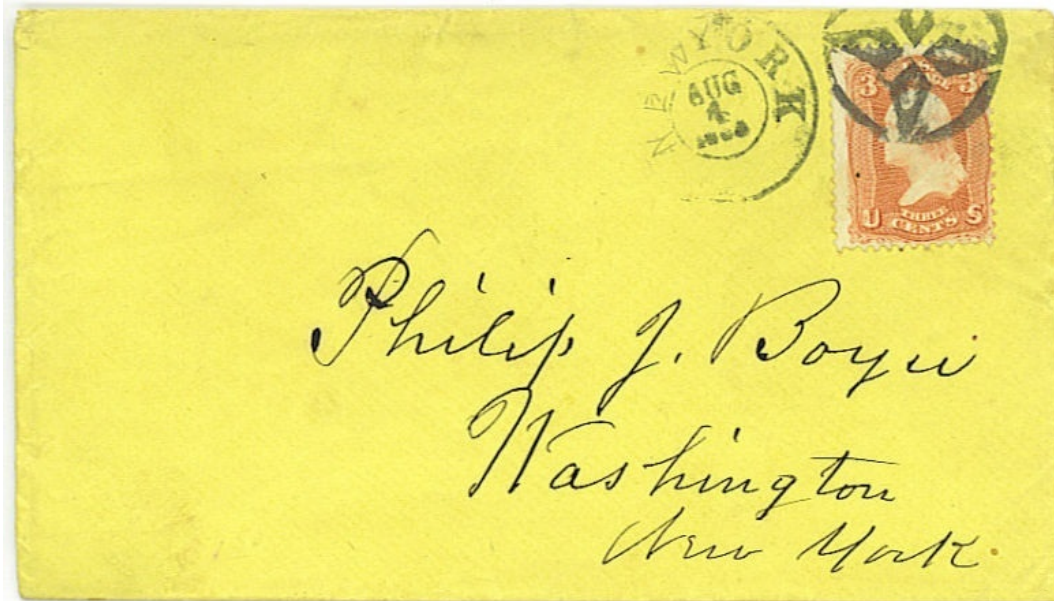 NEW YORK
AUG
4
3 3
U S
CENTS
Philip J. Boyer
Washington
New York